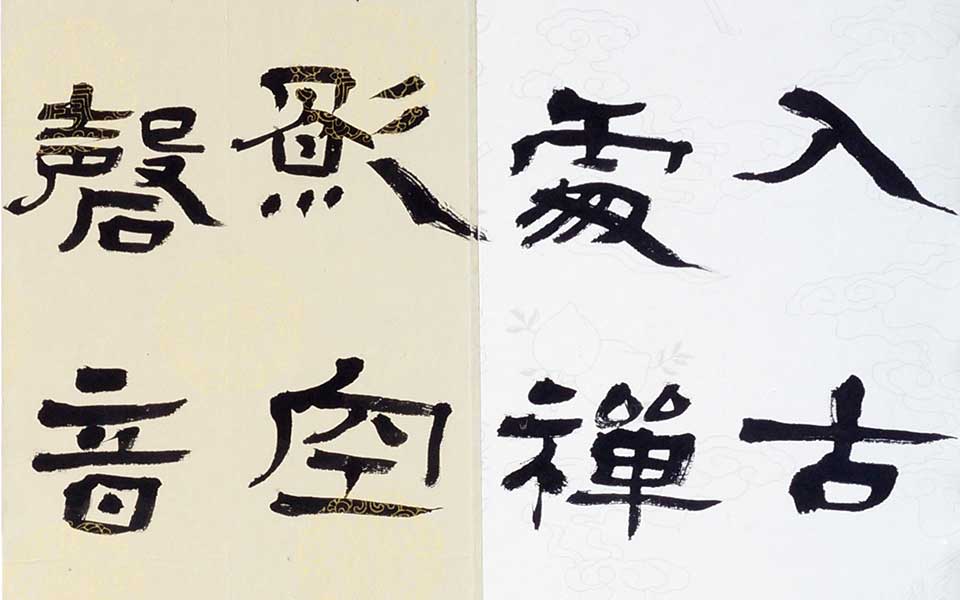 入古
處禪
影空
磬音